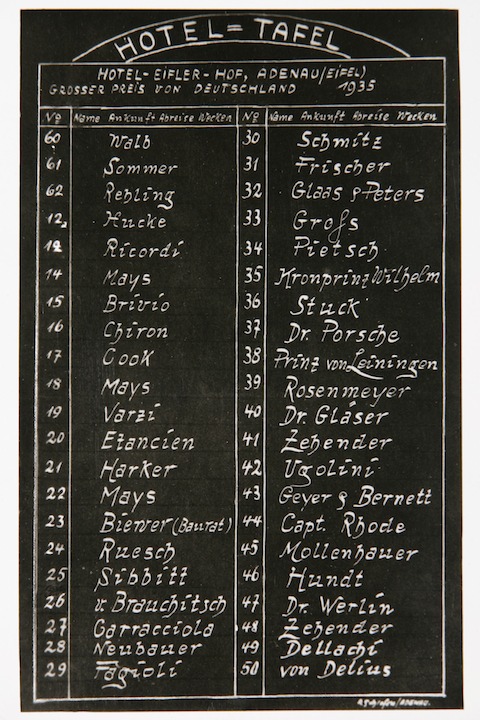 HOTEL = TAFEL
HOTEL-EIFLER-HOF, ADENAU/EIFEL)
GROSSER PREIS VON DEUTSCHLAND 1935
No Name Ankunft Abreise Wecken
60 Walb
61 Sommer
62 Rehling
12a Hucke
12 Ricordi
14 Mays
15 Brivio
16 Chiron
17 Cook
18 Mays
19 Varzi
20 Etancien
21 Harker
22 Mays
23 Bierver (Baurat)
24 Ruesch
25 Sibbitt
26 v. Brauchitsch
27 Garracciola
28 Neubauer
29 Fagioli
No Name Ankunft Abreise Wecken
30 Schmitz
31 Frischer
32 Glaas & Peters
33 Groſs
34 Pietsch
35 Kronprinz Wilhelm
36 Stuck
37 Dr. Porsche
38 Prinz von Leiningen
39 Rosenmeyer
40 Dr. Gläser
41 Zehender
42 Ugolini
43 Geyer & Bernett
44 Capt. Rhode
45 Mollenhauer
46 Hundt
47 Dr. Werlin
48 Zehender
49 Dellachi
50 von Delius
/ADENAU.